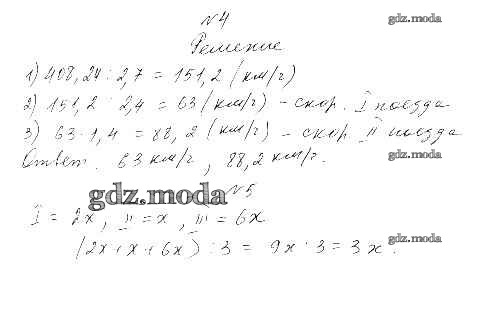 №4
gdz.moda
Решение
1) 408,24 : 2,7 = 151,2 (км/ч)
2) 151,2 : 2,4 = 63 (км/ч) - скор. I поезда
3) 63 · 1,4 = 88,2 (км/ч) - скор II поезда
Ответ. 63 км/ч, 88,2 км/ч.
gdz.moda
gdz.moda
№5
I = 2x, II = x, III = 6x
(2x+x+6x) : 3 = 9x : 3 = 3x.
gdz.moda